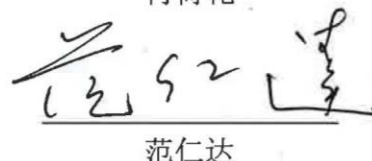 范仁达
范仁达